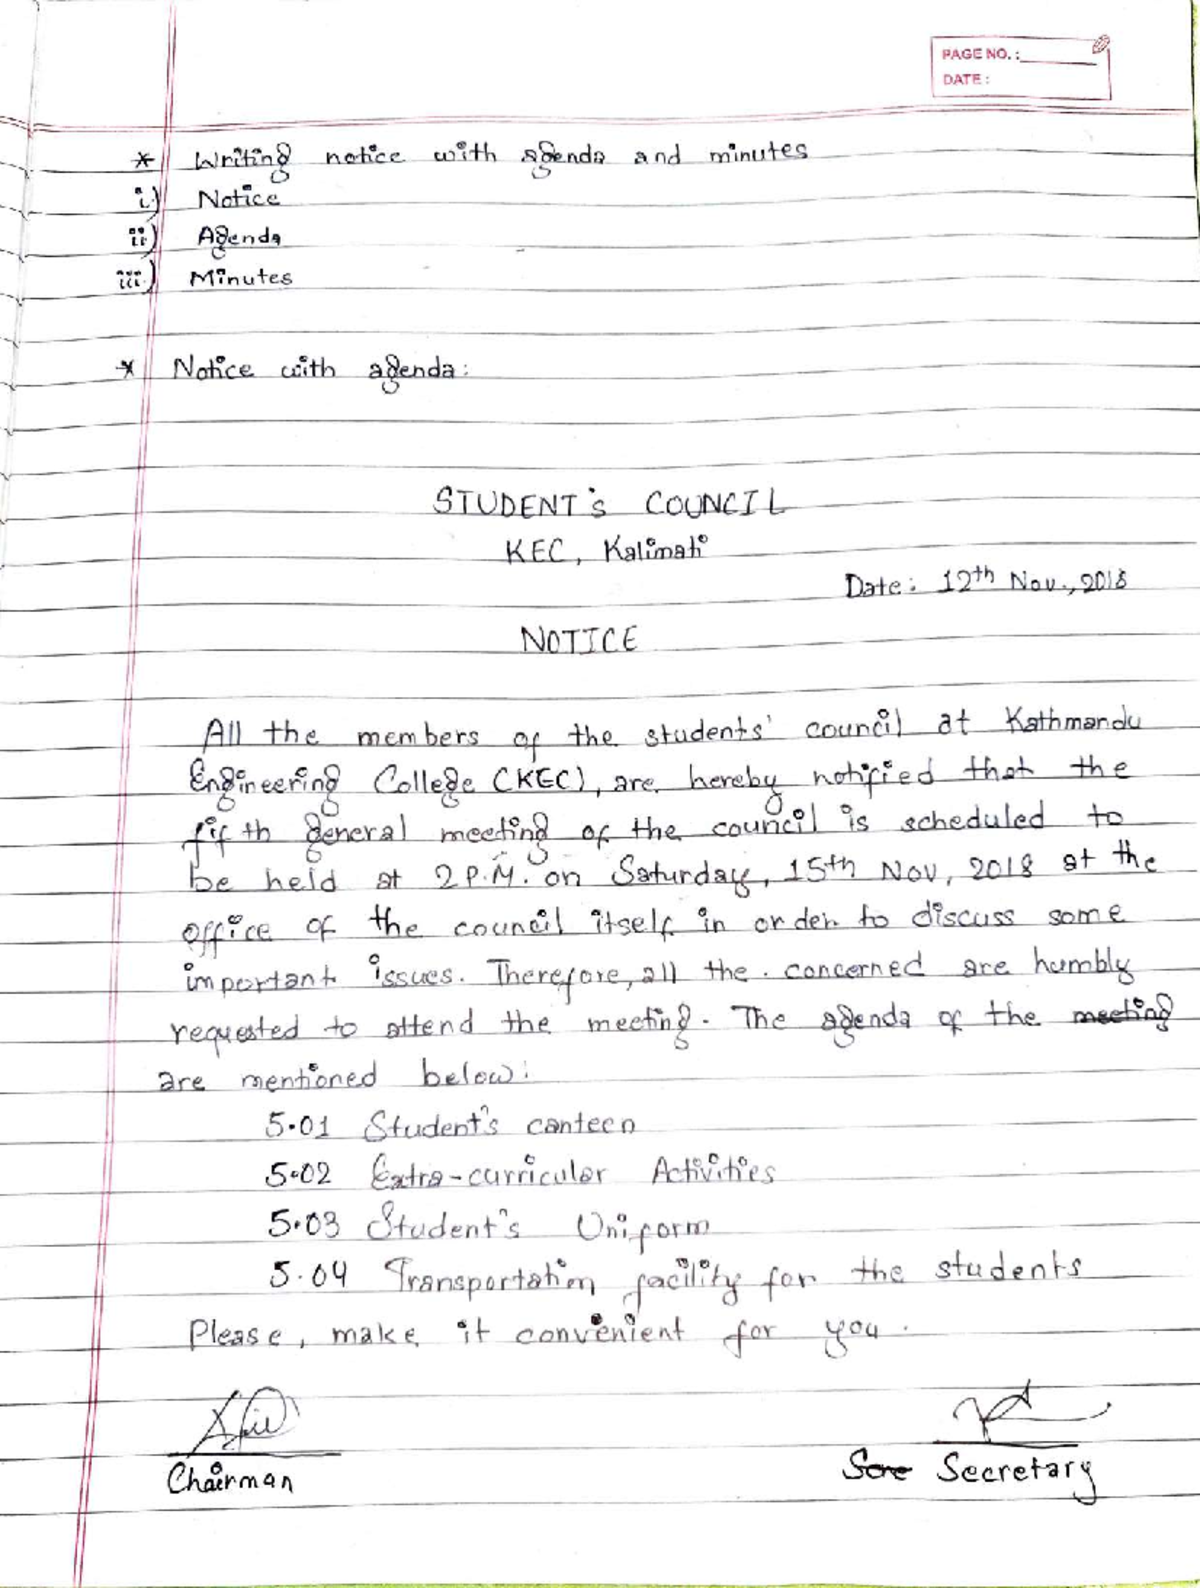 PAGE NO. :
DATE :
* Writing notice with agenda and minutes
i.) Notice
ii) Agenda
iii.) Minutes
* Notice with agenda:
STUDENT's COUNCIL
KEC, Kalimati
Date: 12th Nov., 2018
NOTICE
All the members of the students' council at Kathmandu
Engineering College (KEC), are hereby notified that the
fifth general meeting of the council is scheduled to
be held at 2 P.M. on Saturday, 15th Nov, 2018 at the
office of the council itself in order to discuss some
important issues. Therefore, all the concerned are humbly
requested to attend the meeting. The agenda of the meeting
are mentioned below:
5.01 Student's canteen
5.02 Extra-curricular Activities
5.03 Student's Uniform
5.04 Transportation facility for the students
Please, make it convenient for you.
Chairman Secretary